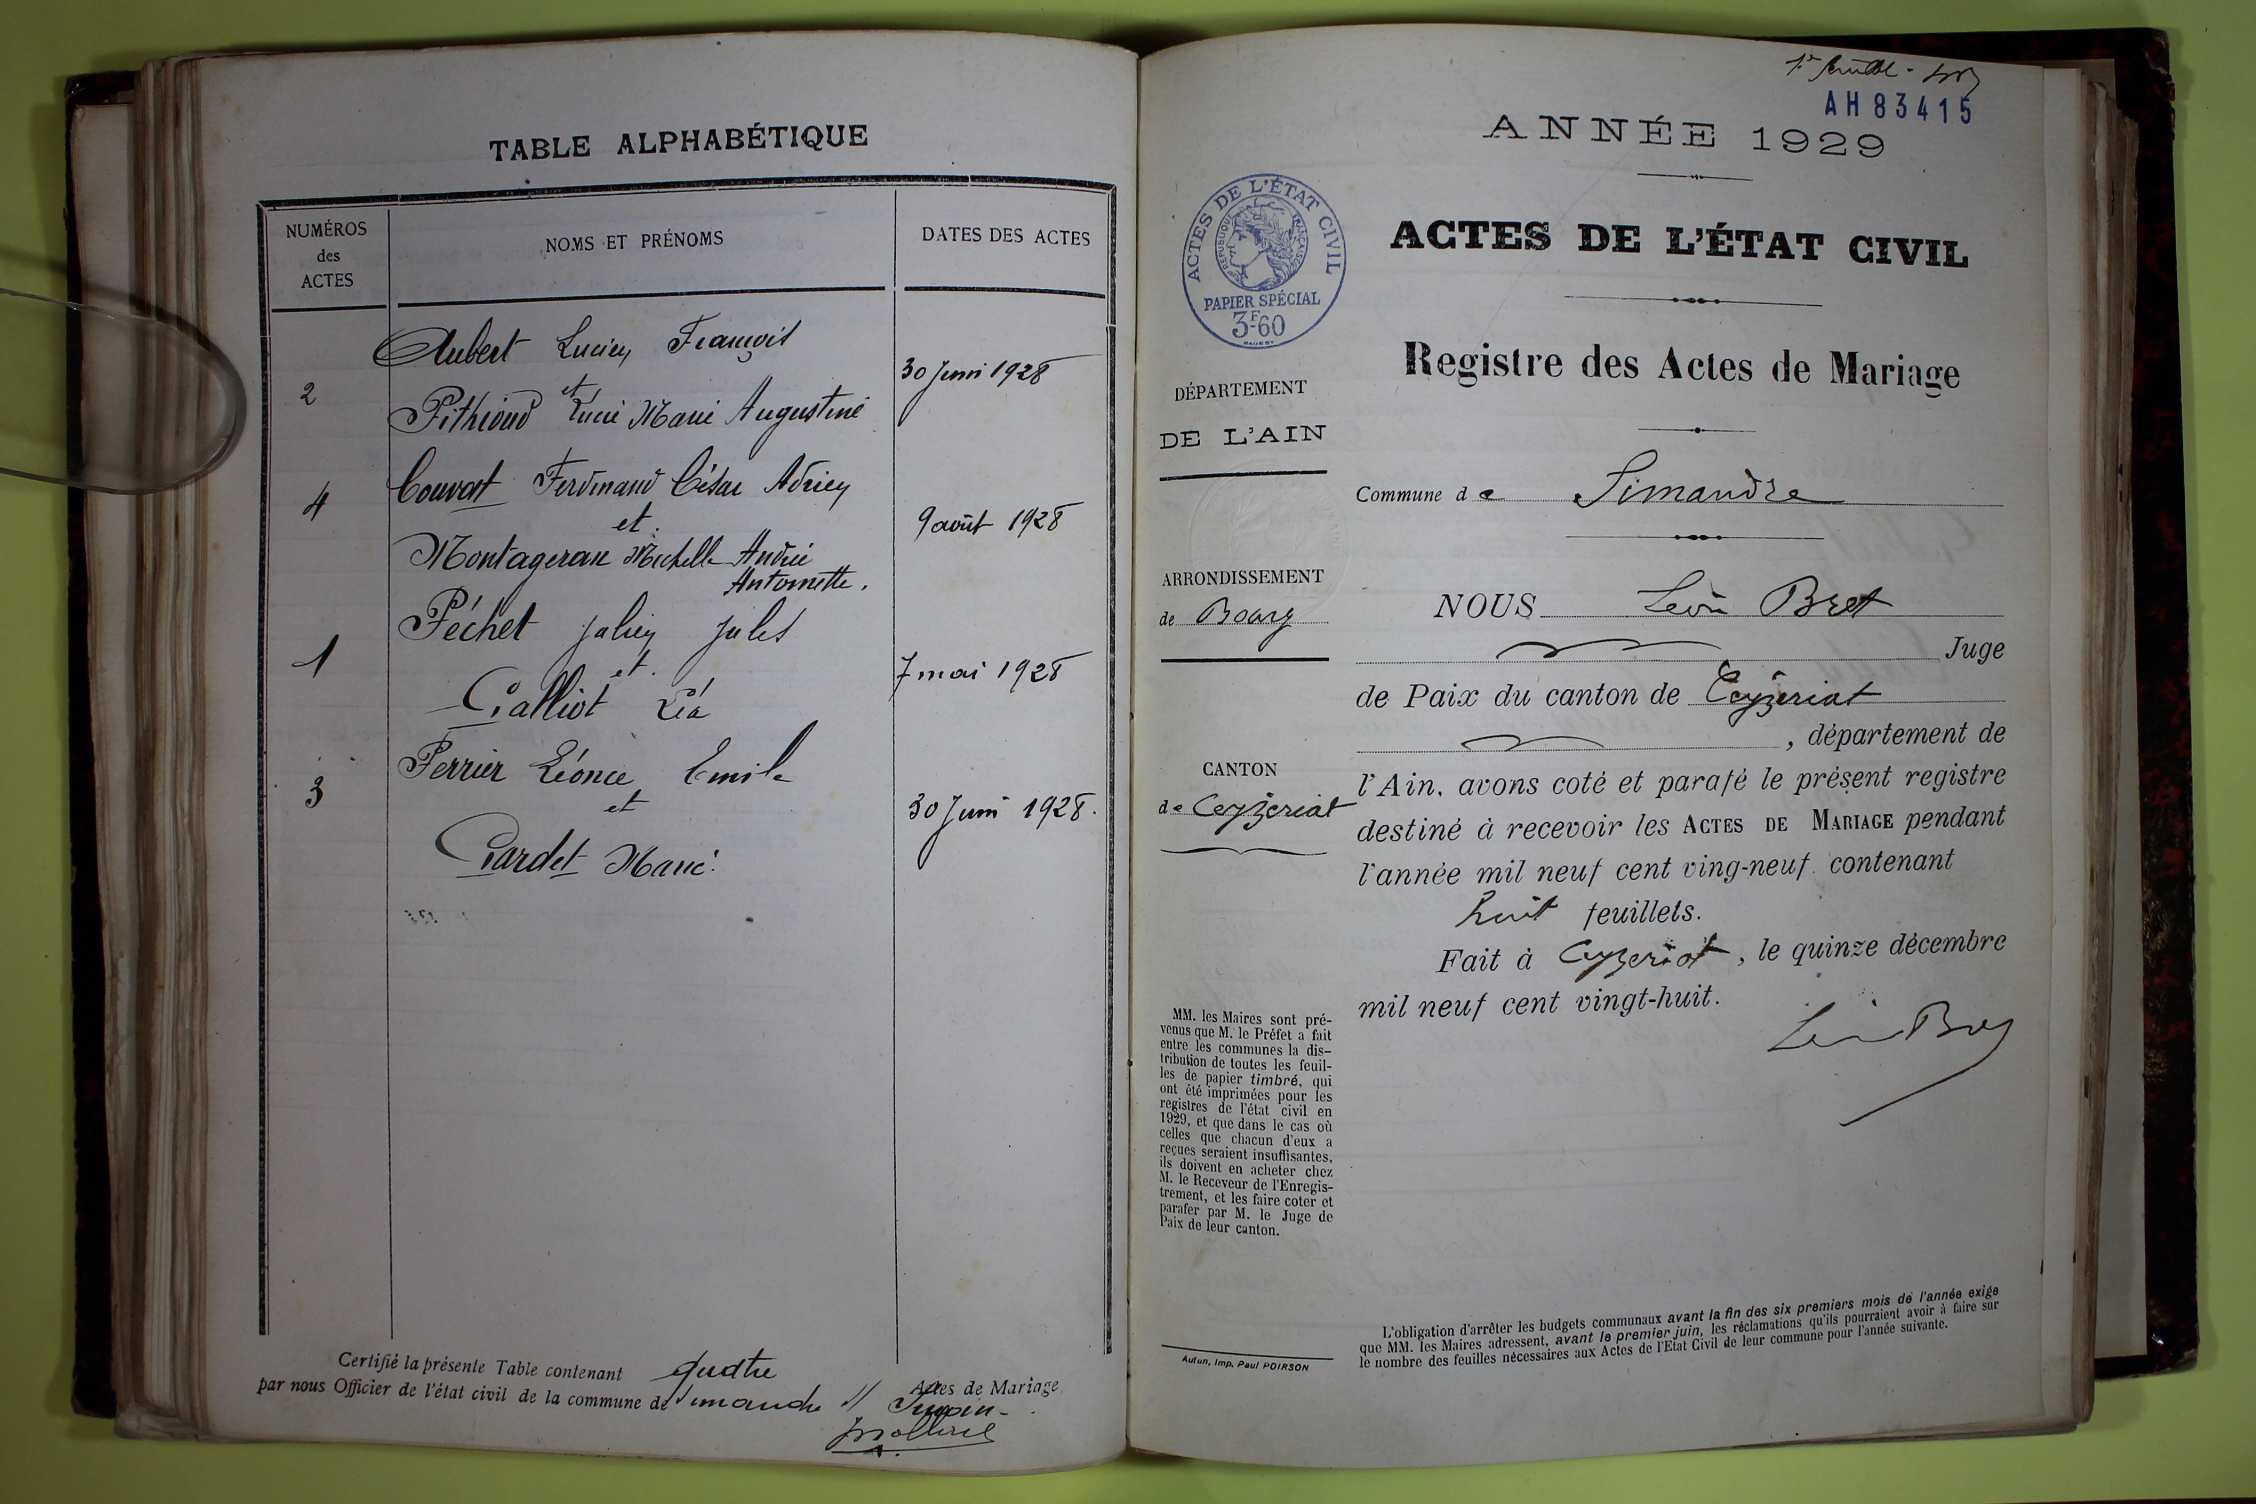 TABLE ALPHABÉTIQUE
NUMÉROS
des
ACTES
NOMS ET PRÉNOMS
DATES DES ACTES
Aubert Lucien François
2
et
30 Juin 1928
Pithioud Lucie Marie Augustine
Couvat Ferdinand César Adrien
4
et
9 août 1928
Montageran Michelle Andrée
Antoinette.
Péchet Julien Jules
1
et
7 mai 1928
Galliot Léa
Perrier Léonce Emile
3
et
30 Juin 1928.
Gardet Marie
Certifié la présente Table contenant quatre Actes de Mariage
par nous Officier de l'état civil de la commune de Simandre s/ Suran
1er feuillet
AH83415
ANNÉE 1929
ACTES DE L'ÉTAT CIVIL
RÉPUBLIQUE FRANÇAISE
PAPIER SPÉCIAL
3F60
ACTES DE L'ÉTAT CIVIL
Registre des Actes de Mariage
DÉPARTEMENT
DE L'AIN
Commune de Simandre
ARRONDISSEMENT
de Bourg
CANTON
de Ceyzeriat
NOUS Léon Bret
Juge
de Paix du canton de Ceyzeriat
, département de
l'Ain, avons coté et parafé le présent registre
destiné à recevoir les ACTES DE MARIAGE pendant
l'année mil neuf cent ving-neuf contenant
huit feuillets.
Fait à Ceyzeriat, le quinze décembre
mil neuf cent vingt-huit.
MM. les Maires sont pré-
venus que M. le Préfet a fait
entre les communes la dis-
tribution de toutes les feuil-
les de papier timbré, qui
ont été imprimées pour les
registres de l'état civil en
1929, et que dans le cas où
celles que chacun d'eux a
reçues seraient insuffisantes,
ils doivent en acheter chez
M. le Receveur de l'Enregis-
trement, et les faire coter et
parafer par M. le Juge de
Paix de leur canton.
Autun, Imp. Paul POIRSON
L'obligation d'arrêter les budgets communaux avant la fin des six premiers mois de l'année exige
que MM. les Maires adressent, avant le premier juin, les réclamations qu'ils pourraient avoir à faire sur
le nombre des feuilles nécessaires aux Actes de l'Etat Civil de leur commune pour l'année suivante.